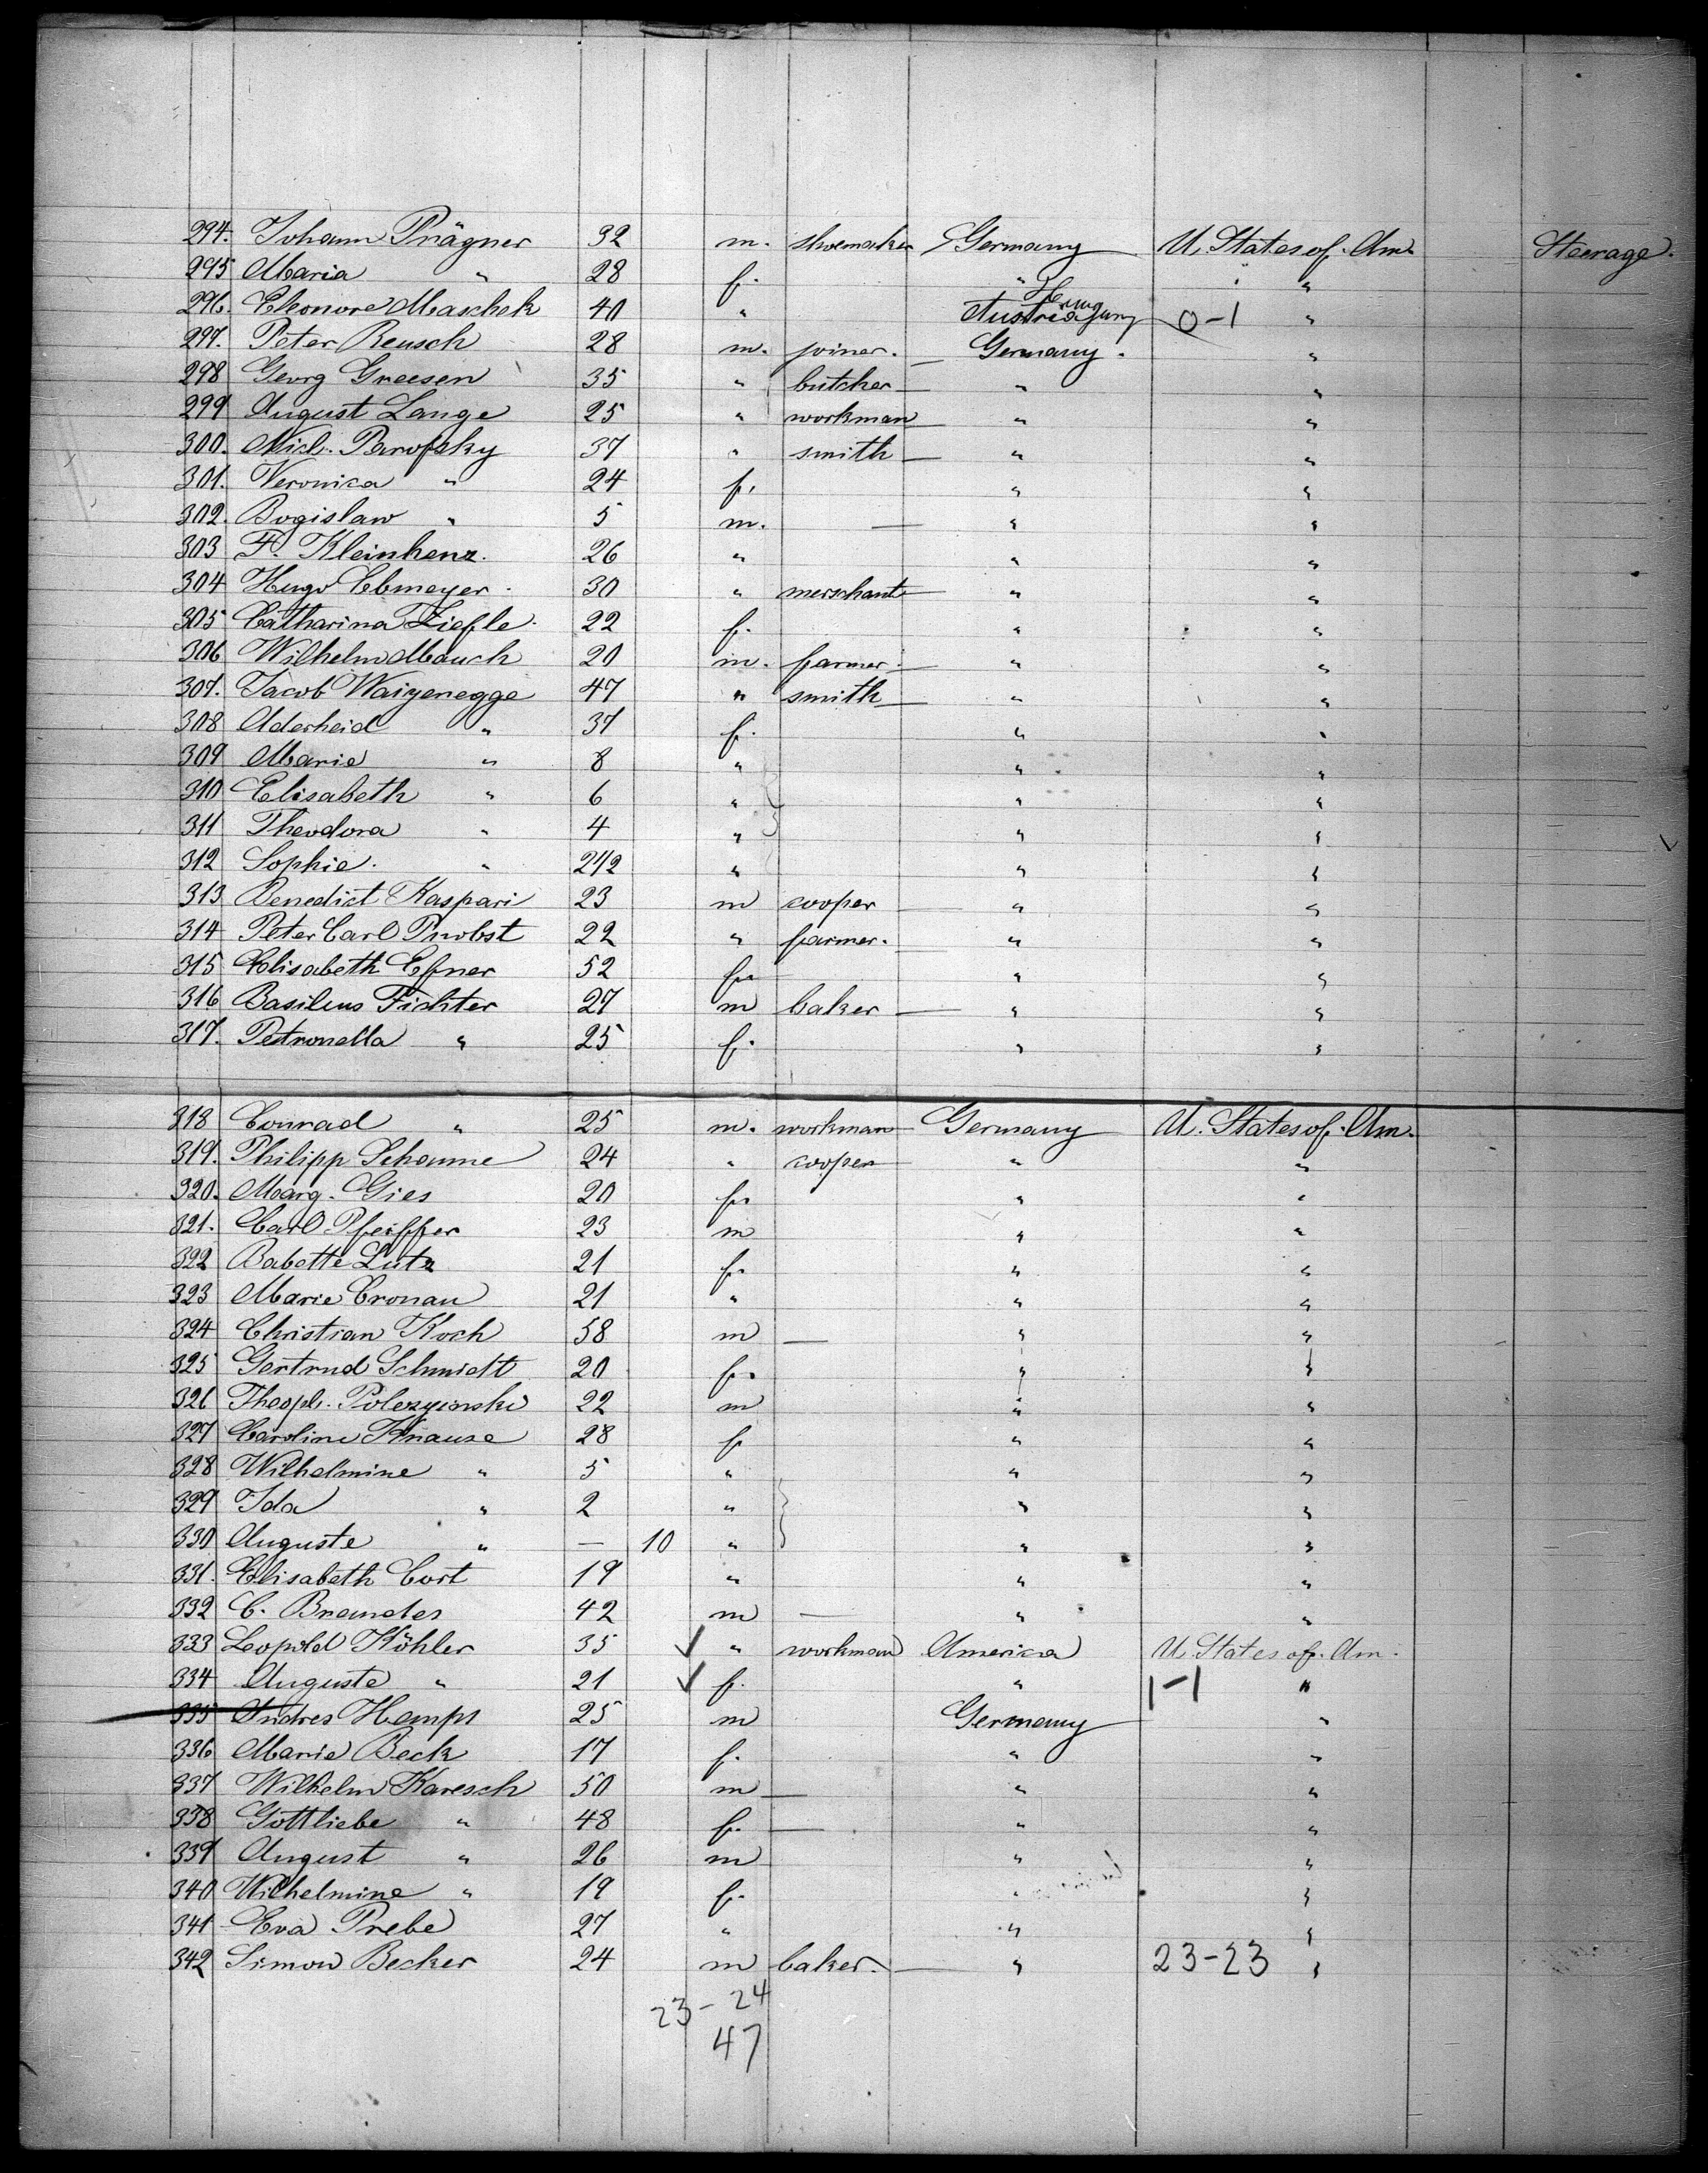 294. Johann Prägner 32 m. shoemaker Germany U. States of. Am. Steerage.
295 Maria " 28 f. " "
296. Eleonore Maschek 40 " Austria Hungary 0-1 "
297. Peter Reusch 28 m. joiner. Germany. "
298 Georg Greesen 35 " butcher — " "
299 August Lange 25 " workman — " "
300. Mich. Parofsky 37 " smith — " "
301. Veronica " 24 f. " "
302. Bogislaw " 5 m. — " "
303 F. Kleinhenz. 26 " " "
304 Hugo Ebmeyer. 30 " merchant — " "
305 Catharina Ziefle. 22 f. " "
306 Wilhelm Mauch 20 m. farmer. — " "
307. Jacob Waizenegge 47 " smith — " "
308 Aderheid " 37 f. " "
309 Marie " 8 " " "
310 Elisabeth " 6 " " "
311 Theodora " 4 " " "
312 Sophie. " 2 1/2 " " "
313 Benedict Kaspari 23 m cooper — " "
314 Peter Carl Probst 22 " farmer. " "
315 Elisabeth Efner 52 f. " "
316 Basilius Fichter 27 m baker — " "
317. Petronella " 25 f. " "
318 Conrad " 25 m. workman Germany U. States of. Am.
319. Philipp Schamme 24 " cooper " "
320. Marg. Gies 20 f. " "
321. Carl Pfeiffer 23 m " "
322 Babette Lutz 21 f. " "
323 Marie Cronau 21 " " "
324 Christian Koch 58 m — " "
325 Gertrud Schmidt 20 f. " "
326 Theoph. Polezyinski 22 m " "
327 Caroline Krause 28 f " "
328 Wilhelmine " 5 " " "
329 Ida " 2 " " "
330 Auguste " — 10 " " "
331. Elisabeth Cort 19 " " "
332 C. Brandes 42 m — " "
333 Leopold Köhler 35 " workman America U. States of. Am.
334 Auguste " 21 f. " 1-1 "
335 Andres Hamps 25 m Germany "
336 Marie Beck 17 f. " "
337 Wilhelm Karesch 50 m — " "
338 Gottliebe " 48 f. — " "
339 August " 26 m " "
340 Wilhelmine " 19 f. " "
341 Eva Prebe 27 " " "
342 Simon Becker 24 m baker. — " 23-23 "
23-24
47